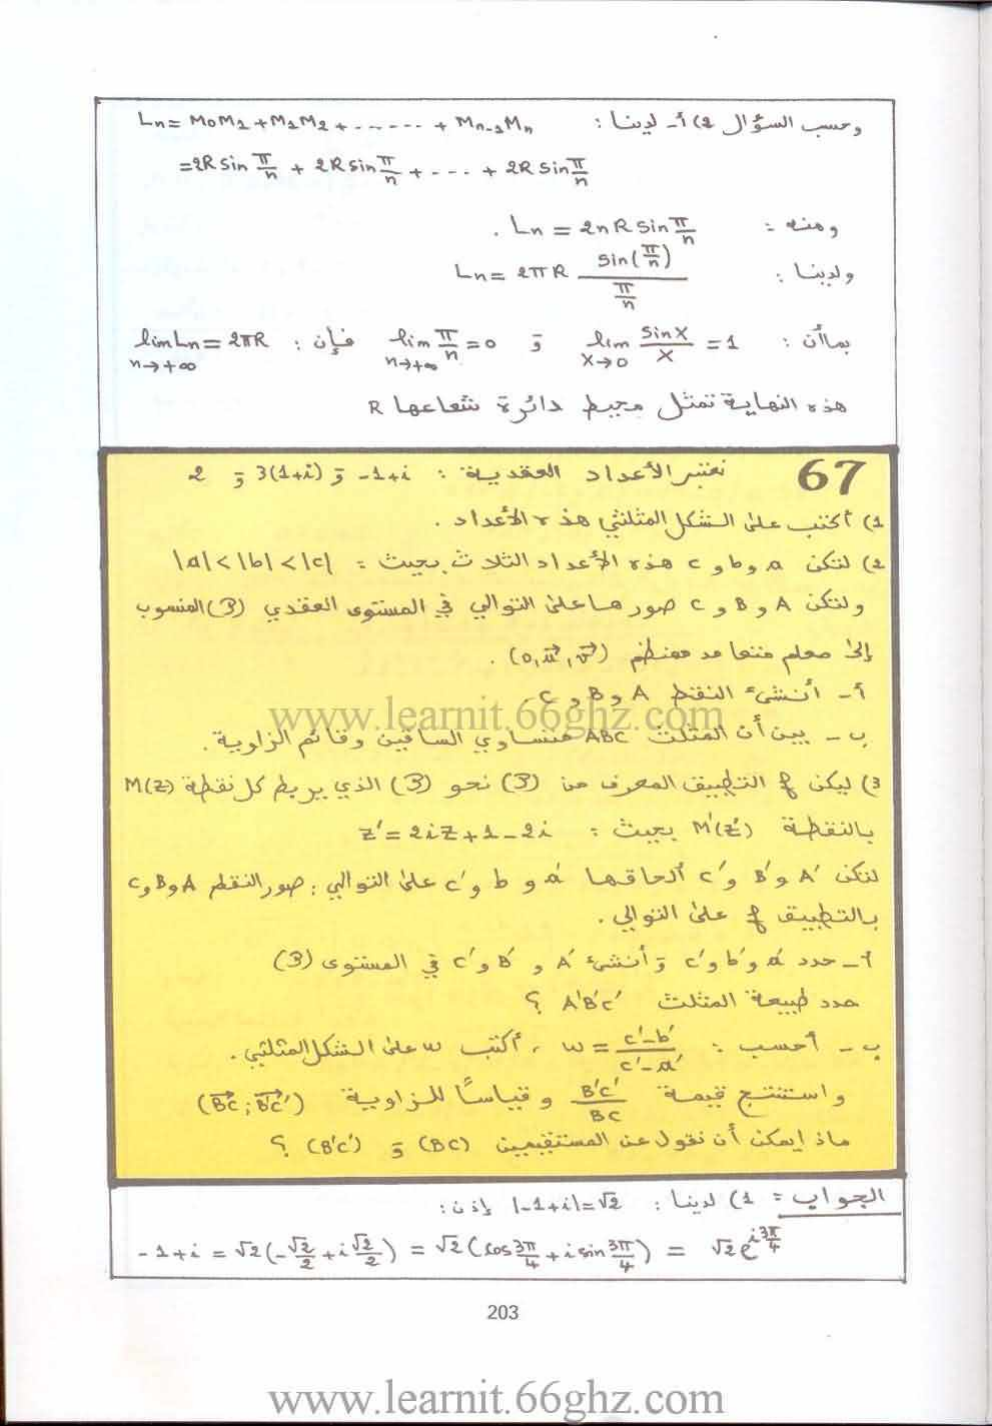 وحسب السؤال 2) أ- لدينا : Ln = M0M1 + M1M2 + ...... + Mn-1Mn
= 2R sin π/n + 2R sin π/n + .... + 2R sin π/n
ومنه : Ln = 2nR sin π/n .
ولدينا : Ln = 2πR sin(π/n) / (π/n)
بما أن : lim x→0 sin x / x = 1 و lim n→+∞ π/n = 0 فإن : lim n→+∞ Ln = 2πR
هذه النهاية تمثل محيط دائرة شعاعها R
67 نعتبر الأعداد العقدية : -1+i و 3(1+i) و 2
1) أكتب على الشكل المثلثي هذه الأعداد .
2) لتكن a و b و c هذه الأعداد الثلاث بحيث : |a|<|b|<|c|
ولتكن A و B و C صورها على التوالي في المستوى العقدي (P) المنسوب
إلى معلم متعامد ممنظم (o,u⃗,v⃗) .
أ- أنشئ النقط A و B و C
www.learnit.66ghz.com
ب- بين أن المثلث ABC متساوي الساقين وقائم الزاوية .
3) ليكن f التطبيق المعرف من (P) نحو (P) الذي يربط كل نقطة M(z)
بالنقطة M'(z') بحيث : z' = 2iz + 1 - 2i
لتكن A' و B' و C' ألحاقها a' و b' و c' على التوالي : صور النقط A و B و C
بالتطبيق f على التوالي .
أ- حدد a' و b' و c' و أنشئ A' و B' و C' في المستوى (P)
حدد طبيعة المثلث A'B'C' ؟
ب- أحسب : w = (c'-b')/(c'-a') ، أكتب w على الشكل المثلثي .
واستنتج قيمة B'C'/BC وقياسا للزاوية (BC⃗ ; B'C'⃗)
ماذا يمكن أن نقول عن المستقيمين (BC) و (B'C') ؟
الجواب : 1) لدينا : |-1+i| = √2 إذن :
-1+i = √2(-√2/2 + i√2/2) = √2(cos 3π/4 + i sin 3π/4) = √2 e^(i3π/4)
203
www.learnit.66ghz.com